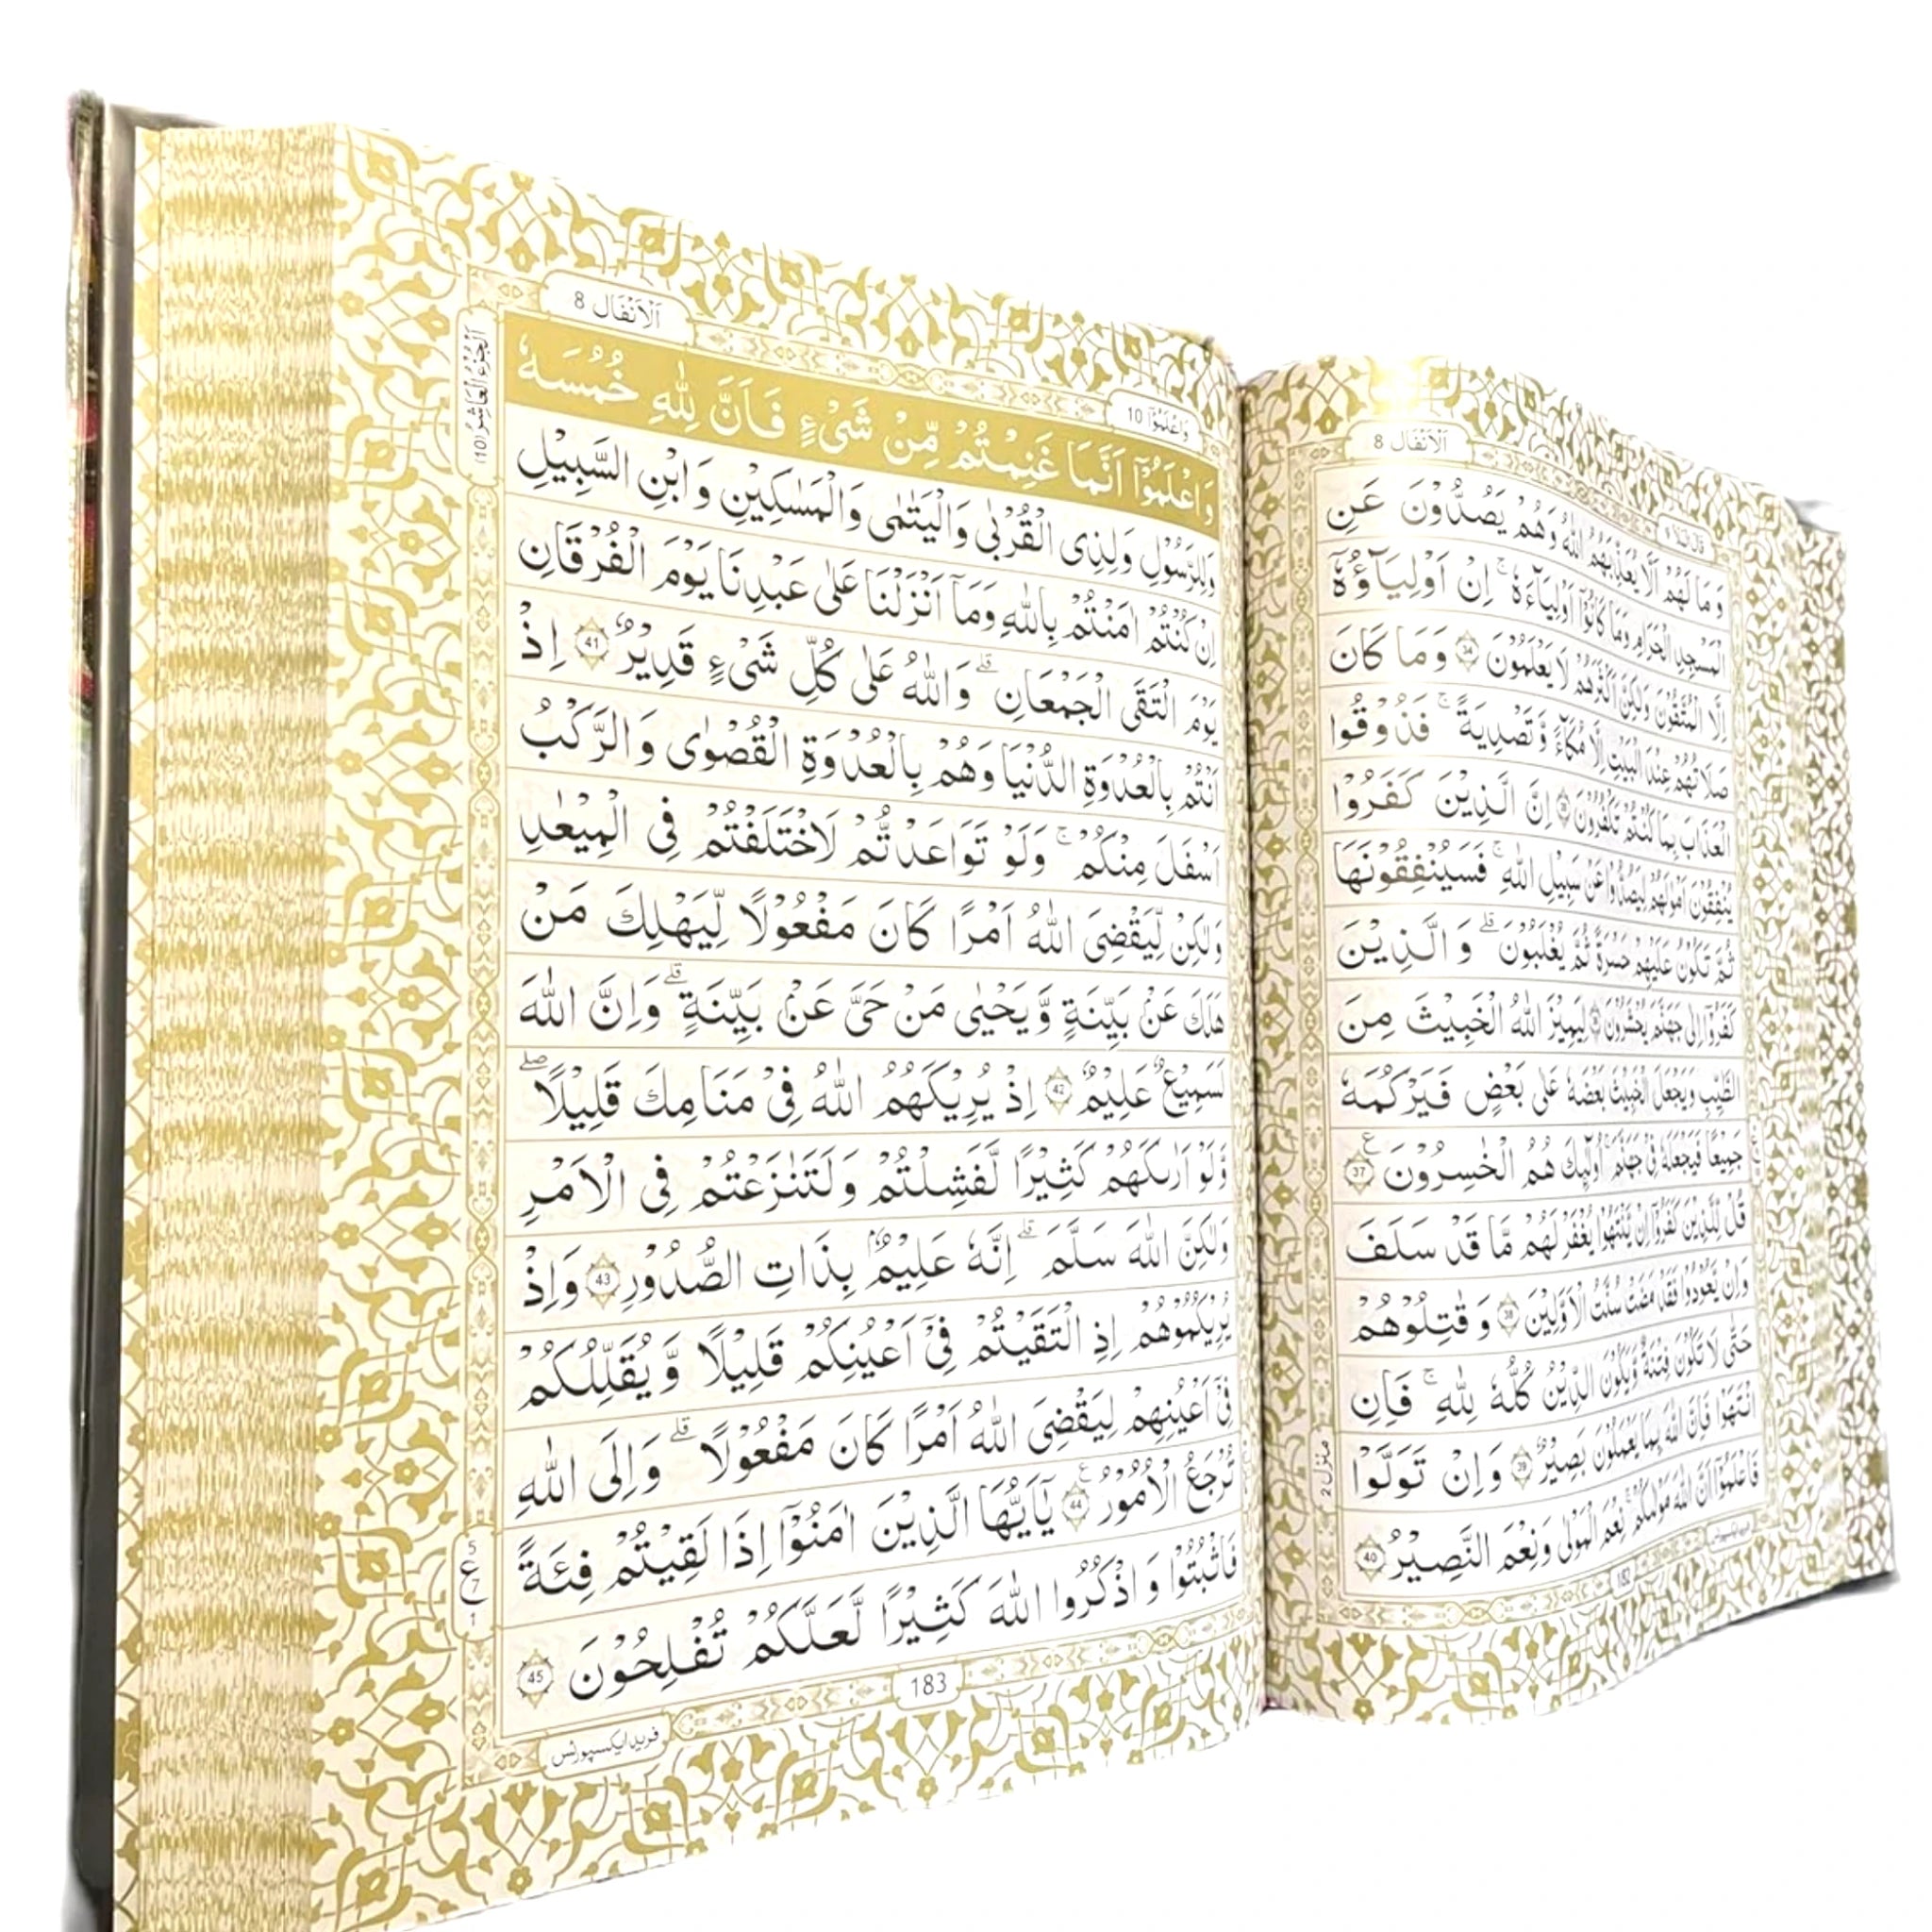 اَلْاَنْفَال 8
وَمَا لَهُمْ اَلَّا يُعَذِّبَهُمُ اللّٰهُ وَهُمْ يَصُدُّوْنَ عَنِ
الْمَسْجِدِ الْحَرَامِ وَمَا كَانُوْۤا اَوْلِيَآءَهٗ ۚ اِنْ اَوْلِيَآؤُهٗۤ
اِلَّا الْمُتَّقُوْنَ وَلٰكِنَّ اَكْثَرَهُمْ لَا يَعْلَمُوْنَ 34 وَمَا كَانَ
صَلَاتُهُمْ عِنْدَ الْبَيْتِ اِلَّا مُكَآءً وَّتَصْدِيَةً ۚ فَذُوْقُوا
الْعَذَابَ بِمَا كُنْتُمْ تَكْفُرُوْنَ 35 اِنَّ الَّذِيْنَ كَفَرُوْا
يُنْفِقُوْنَ اَمْوَالَهُمْ لِيَصُدُّوْا عَنْ سَبِيْلِ اللّٰهِ ۚ فَسَيُنْفِقُوْنَهَا
ثُمَّ تَكُوْنُ عَلَيْهِمْ حَسْرَةً ثُمَّ يُغْلَبُوْنَ ۗ وَالَّذِيْنَ
كَفَرُوْۤا اِلٰى جَهَنَّمَ يُحْشَرُوْنَ 36 لِيَمِيْزَ اللّٰهُ الْخَبِيْثَ مِنَ
الطَّيِّبِ وَيَجْعَلَ الْخَبِيْثَ بَعْضَهٗ عَلٰى بَعْضٍ فَيَرْكُمَهٗ
جَمِيْعًا فَيَجْعَلَهٗ فِيْ جَهَنَّمَ ۚ اُولٰٓئِكَ هُمُ الْخٰسِرُوْنَ 37
قُلْ لِّلَّذِيْنَ كَفَرُوْۤا اِنْ يَّنْتَهُوْا يُغْفَرْ لَهُمْ مَّا قَدْ سَلَفَ
وَاِنْ يَّعُوْدُوْا فَقَدْ مَضَتْ سُنَّتُ الْاَوَّلِيْنَ 38 وَقَاتِلُوْهُمْ
حَتّٰى لَا تَكُوْنَ فِتْنَةٌ وَّيَكُوْنَ الدِّيْنُ كُلُّهٗ لِلّٰهِ ۚ فَاِنِ
انْتَهَوْا فَاِنَّ اللّٰهَ بِمَا يَعْمَلُوْنَ بَصِيْرٌ 39 وَاِنْ تَوَلَّوْا
فَاعْلَمُوْۤا اَنَّ اللّٰهَ مَوْلٰىكُمْ ۚ نِعْمَ الْمَوْلٰى وَنِعْمَ النَّصِيْرُ 40
منزل 2
182
وَاعْلَمُوْۤا 10
اَلْاَنْفَال 8
اَلْجُزْءُ الْعَاشِرُ (10)
وَاعْلَمُوْۤا اَنَّمَا غَنِمْتُمْ مِّنْ شَيْءٍ فَاَنَّ لِلّٰهِ خُمُسَهٗ
وَلِلرَّسُوْلِ وَلِذِى الْقُرْبٰى وَالْيَتٰمٰى وَالْمَسٰكِيْنِ وَابْنِ السَّبِيْلِ
اِنْ كُنْتُمْ اٰمَنْتُمْ بِاللّٰهِ وَمَاۤ اَنْزَلْنَا عَلٰى عَبْدِنَا يَوْمَ الْفُرْقَانِ
يَوْمَ الْتَقَى الْجَمْعَانِ ۗ وَاللّٰهُ عَلٰى كُلِّ شَيْءٍ قَدِيْرٌ 41 اِذْ
اَنْتُمْ بِالْعُدْوَةِ الدُّنْيَا وَهُمْ بِالْعُدْوَةِ الْقُصْوٰى وَالرَّكْبُ
اَسْفَلَ مِنْكُمْ ۚ وَلَوْ تَوَاعَدْتُّمْ لَاخْتَلَفْتُمْ فِى الْمِيْعٰدِ
وَلٰكِنْ لِّيَقْضِيَ اللّٰهُ اَمْرًا كَانَ مَفْعُوْلًا لِّيَهْلِكَ مَنْ
هَلَكَ عَنْۢ بَيِّنَةٍ وَّيَحْيٰى مَنْ حَيَّ عَنْۢ بَيِّنَةٍ ۗ وَاِنَّ اللّٰهَ
لَسَمِيْعٌ عَلِيْمٌ 42 اِذْ يُرِيْكَهُمُ اللّٰهُ فِيْ مَنَامِكَ قَلِيْلًا ۖ
وَلَوْ اَرٰىكَهُمْ كَثِيْرًا لَّفَشِلْتُمْ وَلَتَنٰزَعْتُمْ فِى الْاَمْرِ
وَلٰكِنَّ اللّٰهَ سَلَّمَ ۗ اِنَّهٗ عَلِيْمٌۢ بِذَاتِ الصُّدُوْرِ 43 وَاِذْ
يُرِيْكُمُوْهُمْ اِذِ الْتَقَيْتُمْ فِيْۤ اَعْيُنِكُمْ قَلِيْلًا وَّيُقَلِّلُكُمْ
فِيْۤ اَعْيُنِهِمْ لِيَقْضِيَ اللّٰهُ اَمْرًا كَانَ مَفْعُوْلًا ۗ وَاِلَى اللّٰهِ
تُرْجَعُ الْاُمُوْرُ 44 يٰۤاَيُّهَا الَّذِيْنَ اٰمَنُوْۤا اِذَا لَقِيْتُمْ فِئَةً
فَاثْبُتُوْا وَاذْكُرُوا اللّٰهَ كَثِيْرًا لَّعَلَّكُمْ تُفْلِحُوْنَ 45
5
ع
7
1
183
فرید ایکسپورٹس